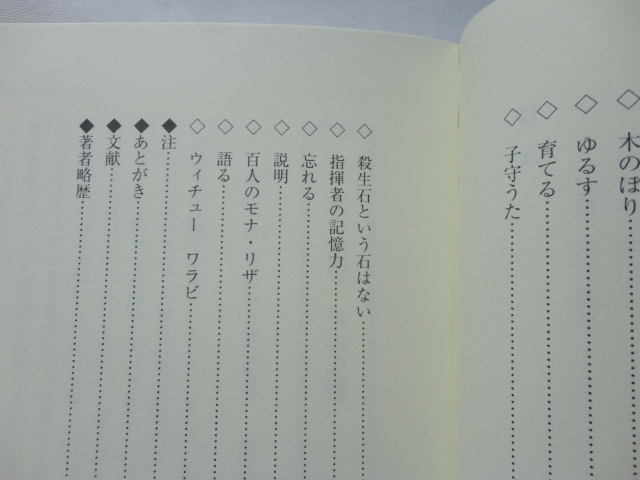 ◇ 木のぼり
◇ ゆるす
◇ 育てる
◇ 子守うた
◇ 殺生石という石はない
◇ 指揮者の記憶力
◇ 忘れる
◇ 説明
◇ 百人のモナ・リザ
◇ 語る
◇ ウィチュー ワラビ
◆ 注
◆ あとがき
◆ 文献
◆ 著者略歴